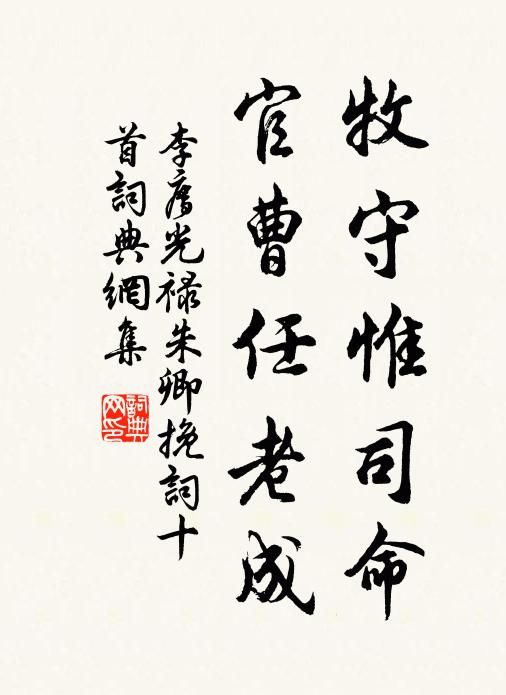 牧守惟司命
官曹任老成
李廌光禄朱卿挽詞十
首詞典網集
詞典
网印